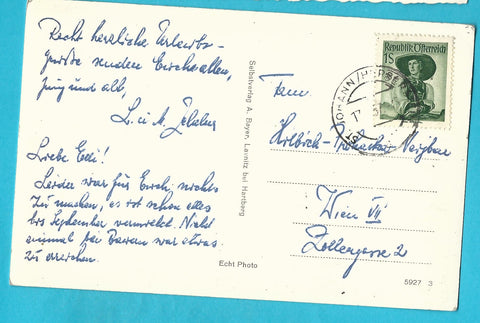 Recht herzliche Urlaubs-
grüße senden Euch allen,
jung und alt,
L. u. M.
Liebe Edi!
Leider war für Euch nichts
zu machen, es ist schon alles
bis September vermietet. Nicht
einmal bei Bauern war etwas
zu erreichen.
Echt Photo
Selbstverlag A. Bayer, Lafnitz bei Hartberg
Republik Österreich
1S
JOHANN
17
Fam.
Wien VII
Zollergasse 2
5927 3